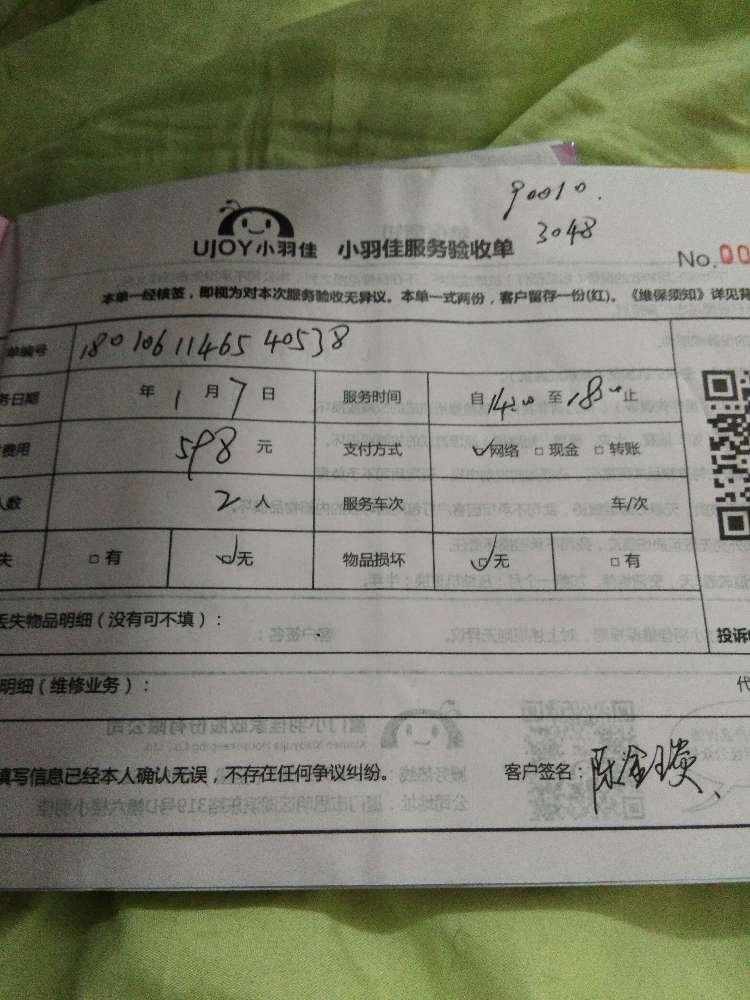 90010.
3048
UJOY小羽佳 小羽佳服务验收单
No.00
本单一经核签，即视为对本次服务验收无异议。本单一式两份，客户留存一份(红)。《维保须知》详见背
单编号 18010611465 40538
务日期 年 1 月 7 日 服务时间 自 1400 至 1800 止
费用 598 元 支付方式 ☑网络 □ 现金 □ 转账
人数 2 人 服务车次 车/次
失 □ 有 ☑无 物品损坏 ☑无 □ 有
丢失物品明细（没有可不填）：
投诉
明细（维修业务）：
代
填写信息已经本人确认无误，不存在任何争议纠纷。 客户签名：